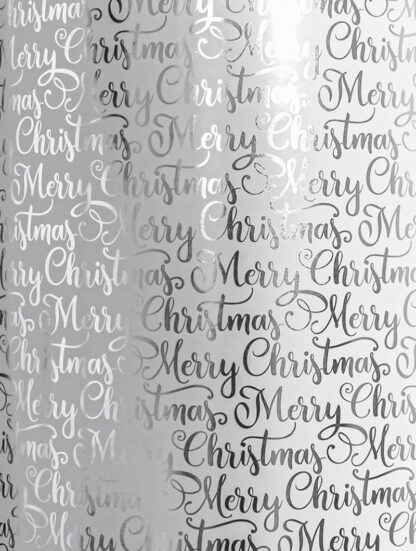 Christmas Merry Christmas
Merry Christmas Merry Christmas
mas Merry Christmas Merry
Christmas Merry Christmas
Merry Christmas Merry
Christmas Merry Christmas
Merry Christmas Merry Christmas
Christmas Merry Christmas
Merry Christmas Merry
Christmas Merry Christmas
Merry Christmas Merry
mas Merry Christmas Merry
Christmas Merry Christmas
Merry Christmas Merry